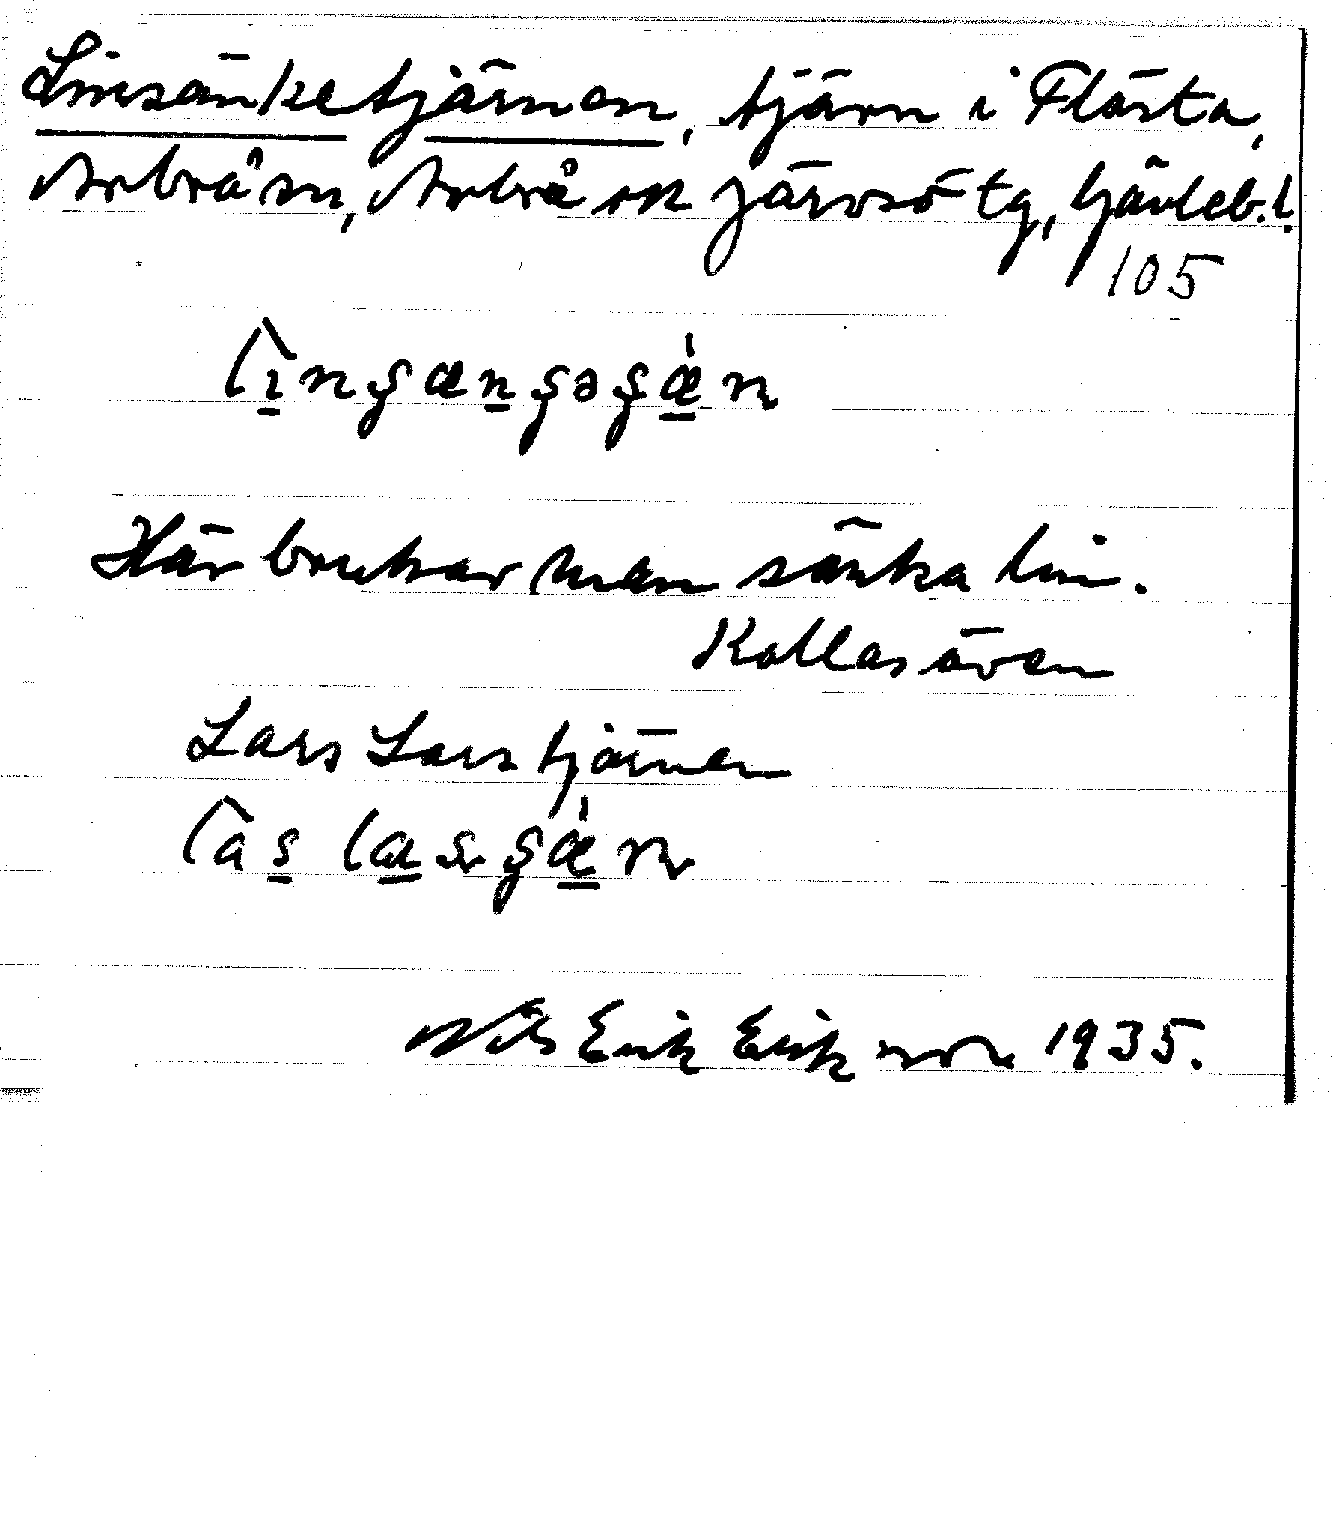 Linsänketjärnen, tjärn i Flästa,
Arbrå sn, Arbrå ok Järvsö tg, Gävleb. l.
105
Här brukar man sänka lin.
Kallas även
Lars Larstjärnen
Nils Erik Eriksson 1935.